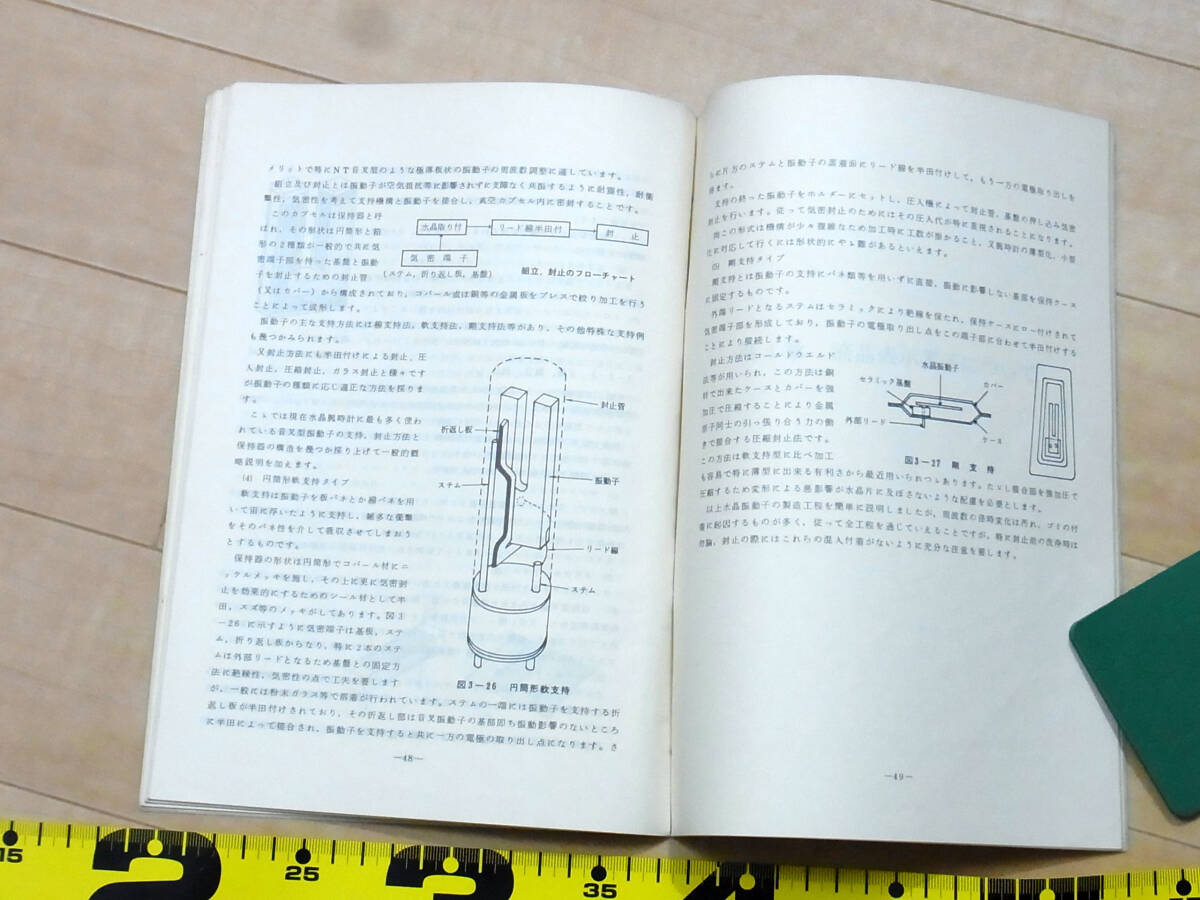 メリットで特にNT音叉型のような極薄板状の振動子の周波数調整に適しています。
組立及び封止とは振動子が空気抵抗等に影響されずに支障なく共振するように耐震性、耐衝
撃性、気密性を考えて支持機構と振動子を接合し、真空カプセル内に密封することです。
このカプセルは保持器と呼
ばれ、その形状は円筒形と箱
形の2種類が一般的で共に気
密端子部を持った基盤と振動
子を封止するための封止管
水晶取り付
リード線半田付
封止
気密端子
(ステム、折り返し板、基盤)
組立、封止のフローチャート
(又はカバー)から構成されており、コバール或は銅等の金属板をプレスで絞り加工を行う
ことによって成形します。
振動子の主な支持方法には線支持法、軟支持法、剛支持法等があり、その他特殊な支持例
も幾つかみられます。
又封止方法にも半田付けによる封止、圧
入封止、圧縮封止、ガラス封止と様々です
が振動子の種類に応じ適正な方法を採りま
す。
こゝでは現在水晶腕時計に最も多く使わ
れている音叉型振動子の支持、封止方法と
保持器の構造を幾つか採り上げて一般的概
略説明を加えます。
(4) 円筒形軟支持タイプ
軟支持は振動子を板バネとか線バネを用
いて宙に浮いたように支持し、雑多な衝撃
をそのバネ性を介して吸収させてしまおう
とするものです。
保持器の形状は円筒形でコバール材にニ
ッケルメッキを施し、その上に更に気密封
止を効果的にするためのシール材として半
田、スズ等のメッキがしてあります。図3
-26に示すように気密端子は基板、ステ
ム、折り返し板からなり、特に2本のステ
ムは外部リードとなるため基盤との固定方
法に絶縁性、気密性の点で工夫を要します
封止管
折返し板
ステム
振動子
リード線
ステム
図3-26 円筒形軟支持
が、一般には粉末ガラス等で溶着が行われています。ステムの一端には振動子を支持する折
返し板が半田付けされており、その折返し部は音叉振動子の基部即ち振動影響のないところ
に半田によって接合され、振動子を支持すると共に一方の電極の取り出し点になります。さ
—48—
らに片方のステムと振動子の蒸着面にリード線を半田付けして、もう一方の電極取り出しを
得ます。
支持の終った振動子をホルダーにセットし、圧入機によって封止管、基盤の押し込み気密
封止を行います。従って気密封止のためにはその圧入代が特に重視されることになります。
尚この形式は機構が少々複雑なため加工時に工数が掛かること、又腕時計の薄型化、小型
化に対応して行くには形状的にやゝ難があるといえます。
(5) 剛支持タイプ
剛支持とは振動子の支持にバネ類等を用いずに直接、振動に影響しない基部を保持ケース
に固定するものです。
外部リードとなるステムはセラミックにより絶縁を保たれ、保持ケースにロー付けされて
気密端子部を形成しており、振動子の電極取り出し点をこの端子部に合わせて半田付けする
ことにより接続します。
封止方法はコールドウエルド
法等が用いられ、この方法は銅
材で出来たケースとカバーを強
加圧で圧縮することにより金属
原子同士の引っ張り合う力の働
きで接合する圧縮封止法です。
この方法は軟支持型に比べ加工
水晶振動子
セラミック基盤
カバー
外部リード
ケース
図3-27 剛支持
も容易で特に薄型に出来る有利さから最近用いられつゝあります。たゞし接合部を強加圧で
圧縮するため変形による悪影響が水晶片に及ぼさないような配慮を必要とします。
以上水晶振動子の製造工程を簡単に説明しましたが、周波数の経時変化は汚れ、ゴミの付
着に起因するものが多く、従って全工程を通じていえることですが、特に封止前の洗浄時は
勿論、封止の際にはこれらの混入付着がないように充分な注意を要します。
—49—
15
2
25
3
35
4